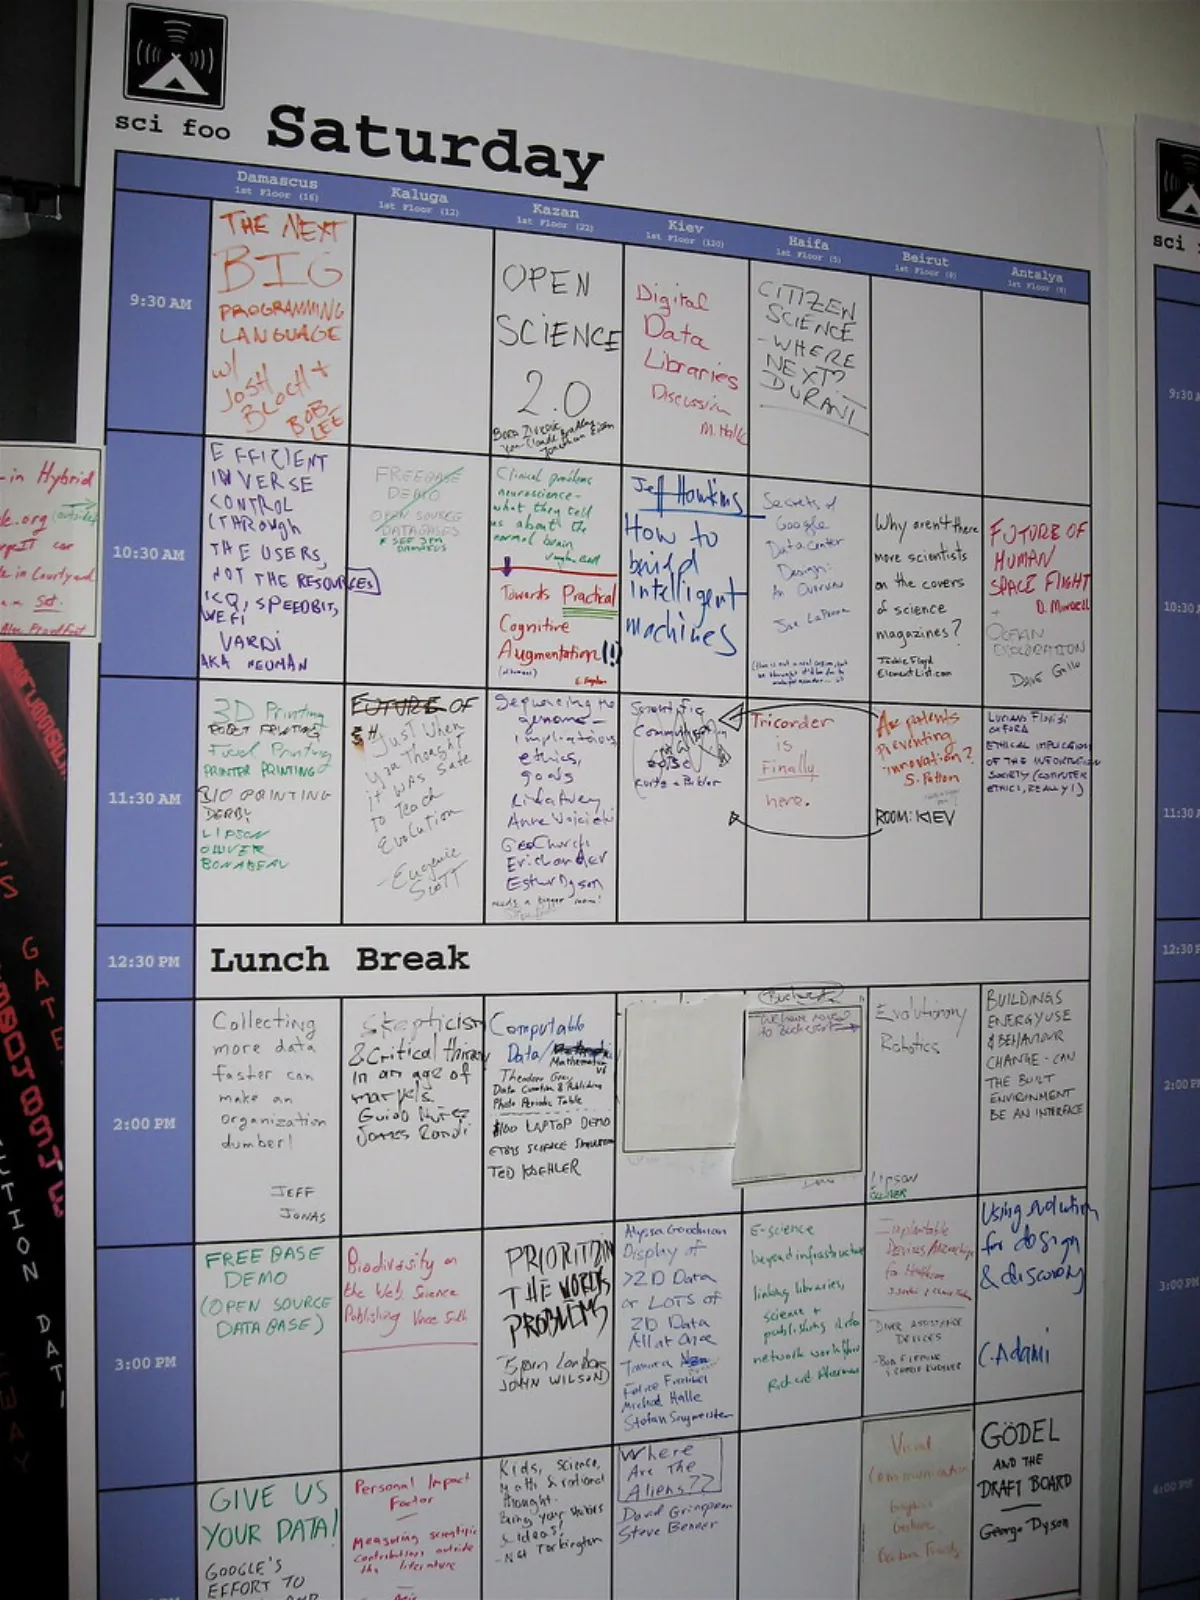 sci foo
Saturday
Damascus
1st Floor (16)
Kaluga
1st Floor (12)
Kazan
1st Floor (22)
Kiev
1st Floor (120)
Haifa
1st Floor (5)
Beirut
1st Floor (9)
Antalya
1st Floor (8)
9:30 AM
THE NEXT
BIG
PROGRAMMING
LANGUAGE
w/
JOSH
BLOCH +
BOB
LEE
OPEN
SCIENCE
2.0
Digital
Data
Libraries
Discussion
M. Halle
CITIZEN
SCIENCE
- WHERE
NEXT?
DURANT
10:30 AM
EFFICIENT
INVERSE
CONTROL
(THROUGH
THE USERS,
NOT THE RESOURCES)
ICQ, SPEEDBIT,
WEFI
VARDI
AKA NEUMAN
FREEBASE
DEMO
OPEN SOURCE
DATABASES
* SEE 3PM
DAMASCUS
Clinical problems
neuroscience -
what they tell
us about the
normal brain
Vaughan Bell
Towards Practical
Cognitive
Augmentation (!)
Jeff Hawkins
How to
build
Intelligent
machines
Secrets of
Google
Data Center
Design:
An Overview
Why aren't there
more scientists
on the covers
of science
magazines?
Jackie Floyd
ElementList.com
FUTURE OF
HUMAN
SPACE FLIGHT
+
OCEAN
EXPLORATION
DAVE Gallo
11:30 AM
3D Printing
ROBOT PRINTING
Food Printing
PRINTER PRINTING
BIO PRINTING
DERBY
LIPSON
OLIVER
BONABEAU
FUTURE OF
Just When
You Thought
it was safe
to Teach
Evolution
- Eugenie
Scott
Sequencing the
genome -
implications,
ethics,
goals
Linda Avey
Anne Wojcicki
Geo Church
Eric Lander
Esther Dyson
needs a bigger room!
Scientific
Tricorder
is
Finally
here.
Are patents
Preventing
innovation?
ROOM: KIEV
LUCIANO FLORIDI
OXFORD
ETHICAL IMPLICATIONS
OF THE INFORMATION
SOCIETY (COMPUTER
ETHICS, REALLY!)
12:30 PM
Lunch Break
2:00 PM
Collecting
more data
faster can
make an
organization
dumber!
JEFF
JONAS
Skepticism
& Critical thinking
in an age of
marvels.
Guido Núñez
James Randi
Computable
Data/
Mathematica
Theodore Gray
Data Curation & Publishing
Photo Periodic Table
$100 LAPTOP DEMO
ETOYS SCIENCE SIMULATION
TED KAEHLER
Bucharest
We have moved
to Bucharest
Evolutionary
Robotics
LIPSON
OLIVER
BUILDINGS
ENERGY USE
& BEHAVIOUR
CHANGE - CAN
THE BUILT
ENVIRONMENT
BE AN INTERFACE
3:00 PM
FREE BASE
DEMO
(OPEN SOURCE
DATABASE)
Biodiversity on
the Web, Science
Publishing
PRIORITIZING
THE WORLDS
PROBLEMS
Bjorn Lomborg
JOHN WILSON
Alyssa Goodman
Display of
>2D Data
or LOTS of
2D Data
All at Once
Tamara
Felice Frankel
Michael Halle
Stefan Sagmeister
E-science
beyond infrastructure
linking libraries,
science +
publishing into
network workflow
Richard Akerman
Implantable
for Healthcare
DIVER ASSISTANCE
DEVICES
Using evolution
for design
& discovery
C. Adami
GIVE US
YOUR DATA!
GOOGLE'S
EFFORT TO
Personal Impact
Factor
Measuring scientific
contributions outside
the literature
Kids, science,
math & rational
thought.
Bring your stories
& ideas!
- Nat Torkington
Where
Are The
Aliens??
David Grinspoon
Steve Benner
Visual
Communication
GÖDEL
AND THE
DRAFT BOARD
George Dyson
-in Hybrid
sci
9:30 A
10:30
11:30 A
12:30 P
2:00 P
3:00 PM